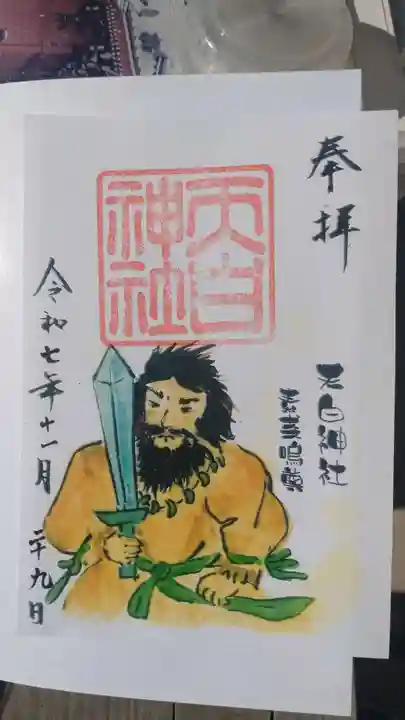 奉拝
天白神社
天白神社
素盞嗚尊
令和七年十一月二十九日